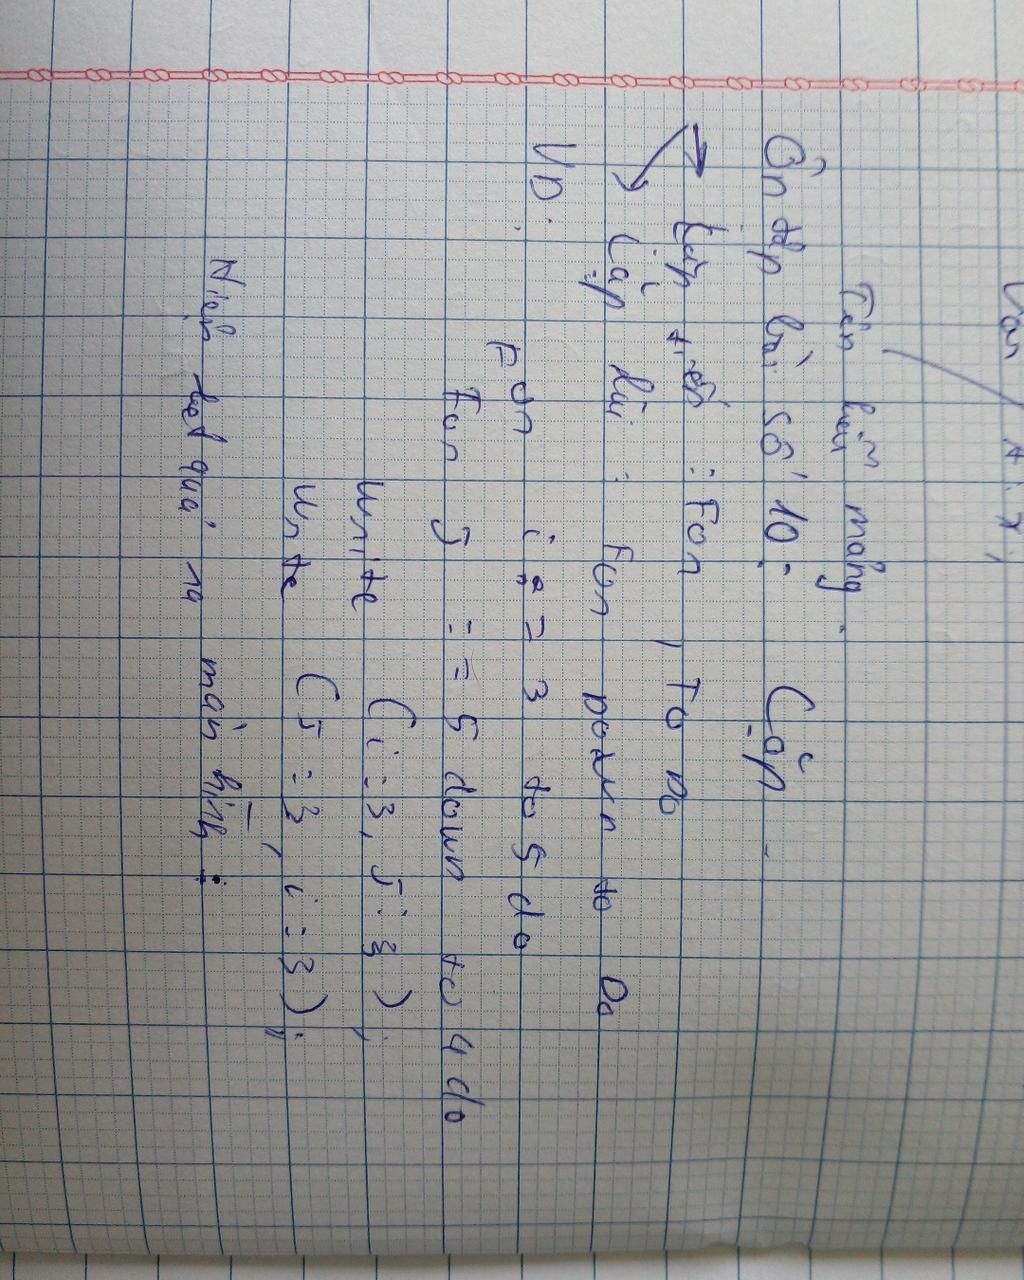 Tên biến mảng.
Ôn tập bài số 10: Lặp
Lặp tiến : For , To Do
Lặp lùi : For Down to Do
VD.
For i := 3 to 5 do
For J := 5 down to 4 do
Write (i:3, J:3);
Write (J:3, i:3);
Hiện kết quả ra màn hình: